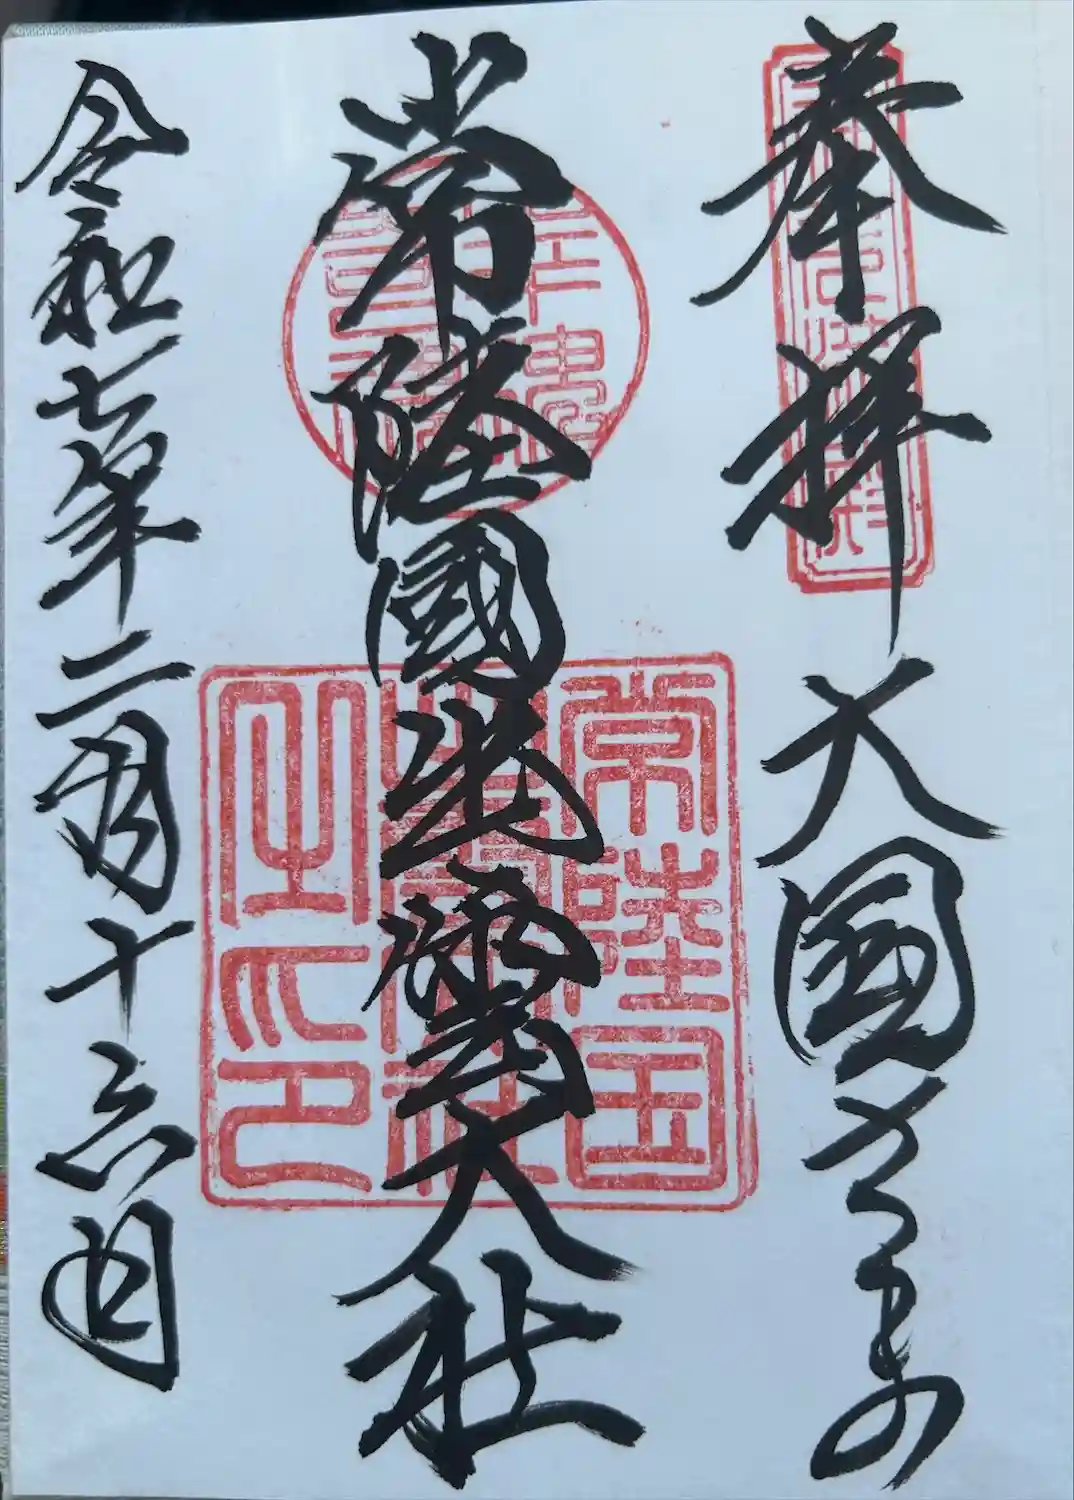 奉拝 大国さま
常陸國出雲大社
令和七年二月十六日
常陸国
出雲大社
之印